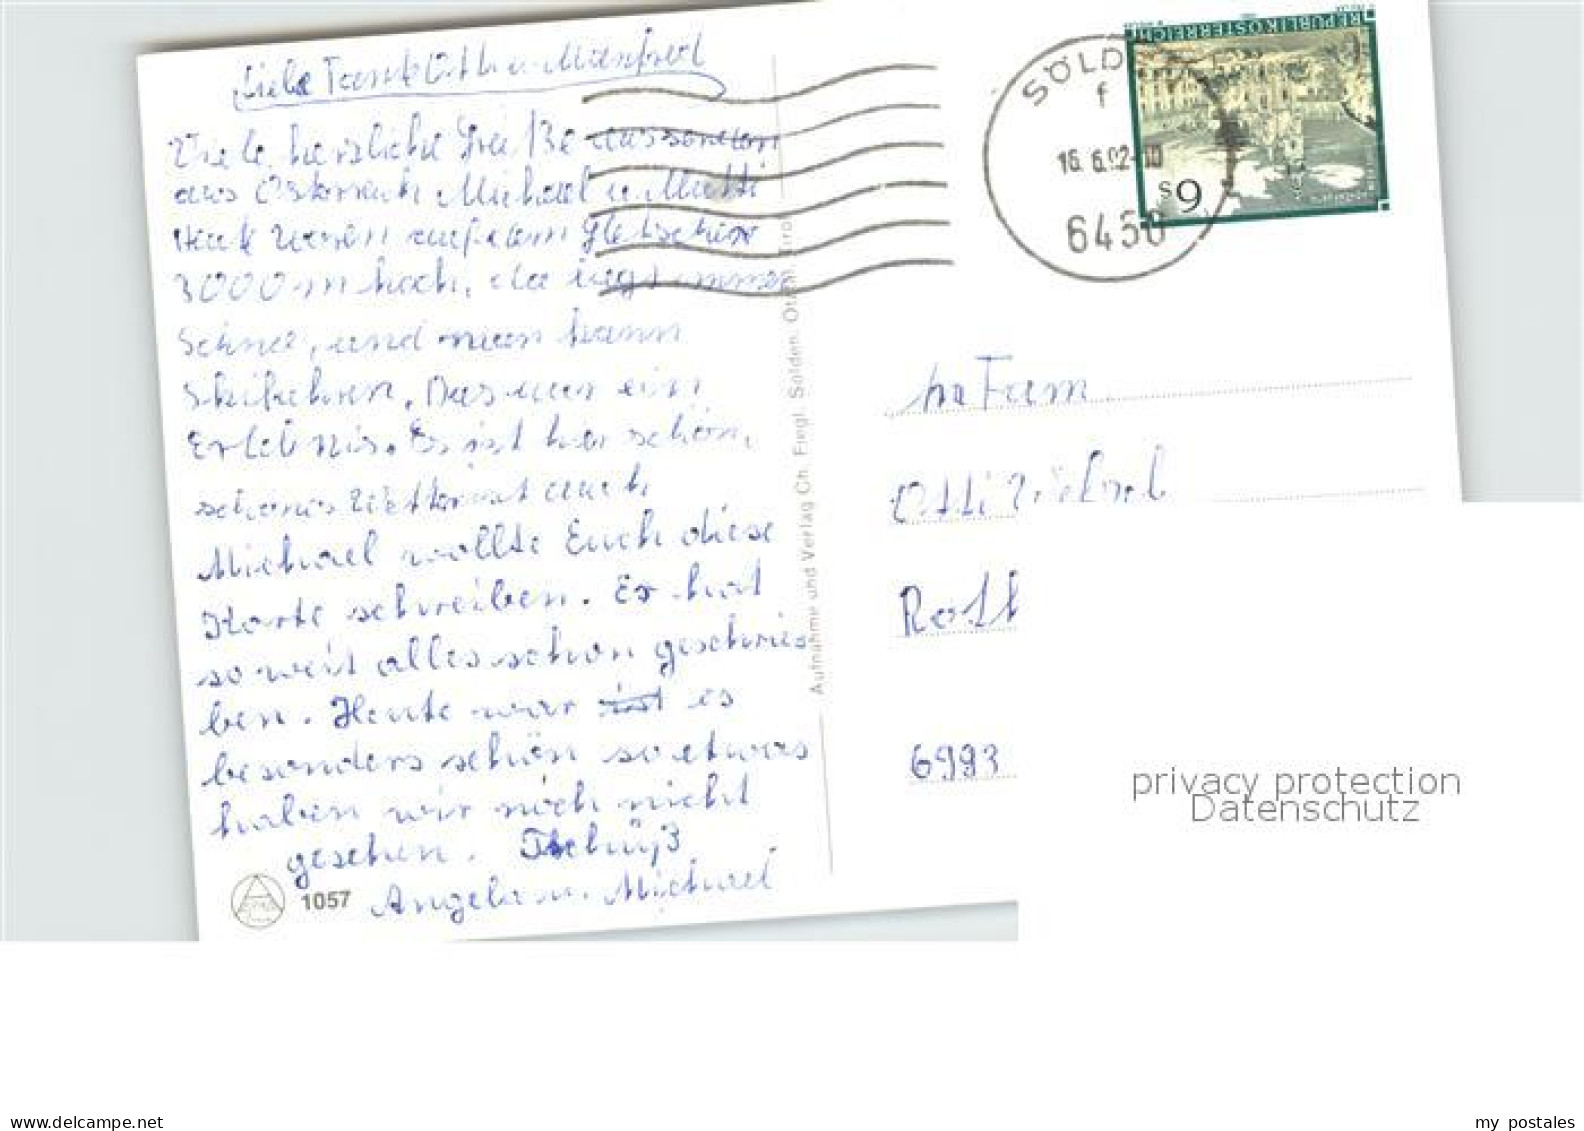 Liebe Tante Otti u. Manfred
Viele herzliche Grüße aus senden
aus Österreich Michael u. Mutti
waren auf dem Gletscher
3000 m hoch, da liegt immer
Schnee, und man kann
skifahren. Das war ein
Erlebnis. Es ist hier schön,
schönes Wetter ist auch
Michael wollte Euch diese
Karte schreiben. Er hat
so weit alles schon geschrie
ben. Heute war ist es
besonders schön so etwas
haben wir noch nicht
gesehen. Tschüß
Angela u. Michael
1057
Aufnahme und Verlag Ch. Fiegl. Sölden. Ötztal. Tirol
SÖLD
f
16.6.92-10
6450
REPUBLIK ÖSTERREICH
S6
Fam.
Otti
6993
privacy protection
Datenschutz
www.delcampe.net
my postales